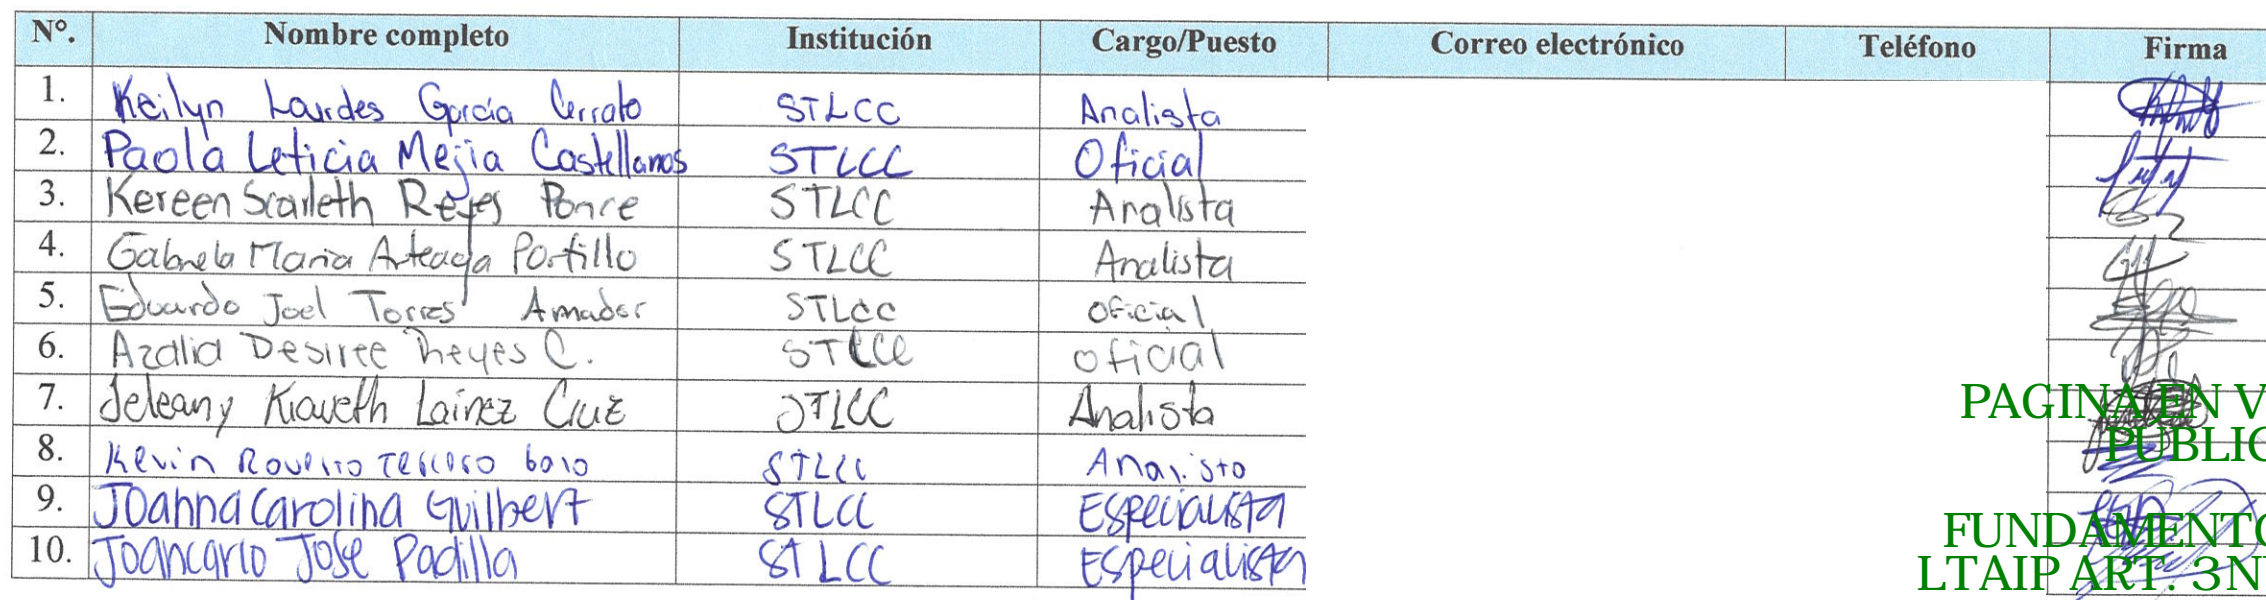 N°. Nombre completo Institución Cargo/Puesto Correo electrónico Teléfono Firma
1. Keilyn Lourdes García Cerrato STLCC Analista
2. Paola Leticia Mejia Castellanos STLCC Oficial
3. Kereen Scarleth Reyes Ponce STLCC Analista
4. Gabriela Maria Arteaga Portillo STLCC Analista
5. Eduardo Joel Torres Amador STLCC oficial
6. Azalia Desiree Reyes C. STLCC oficial
7. Jeleany Lainez Cruz STLCC Analista
8. Kevin STLCC Analista
9. Joanna Carolina Guilbert STLCC Especialista
10. Joancarlo Jose Padilla STLCC Especialista
PAGINA EN V
PUBLIC
FUNDAMENTO
LTAIP ART. 3N